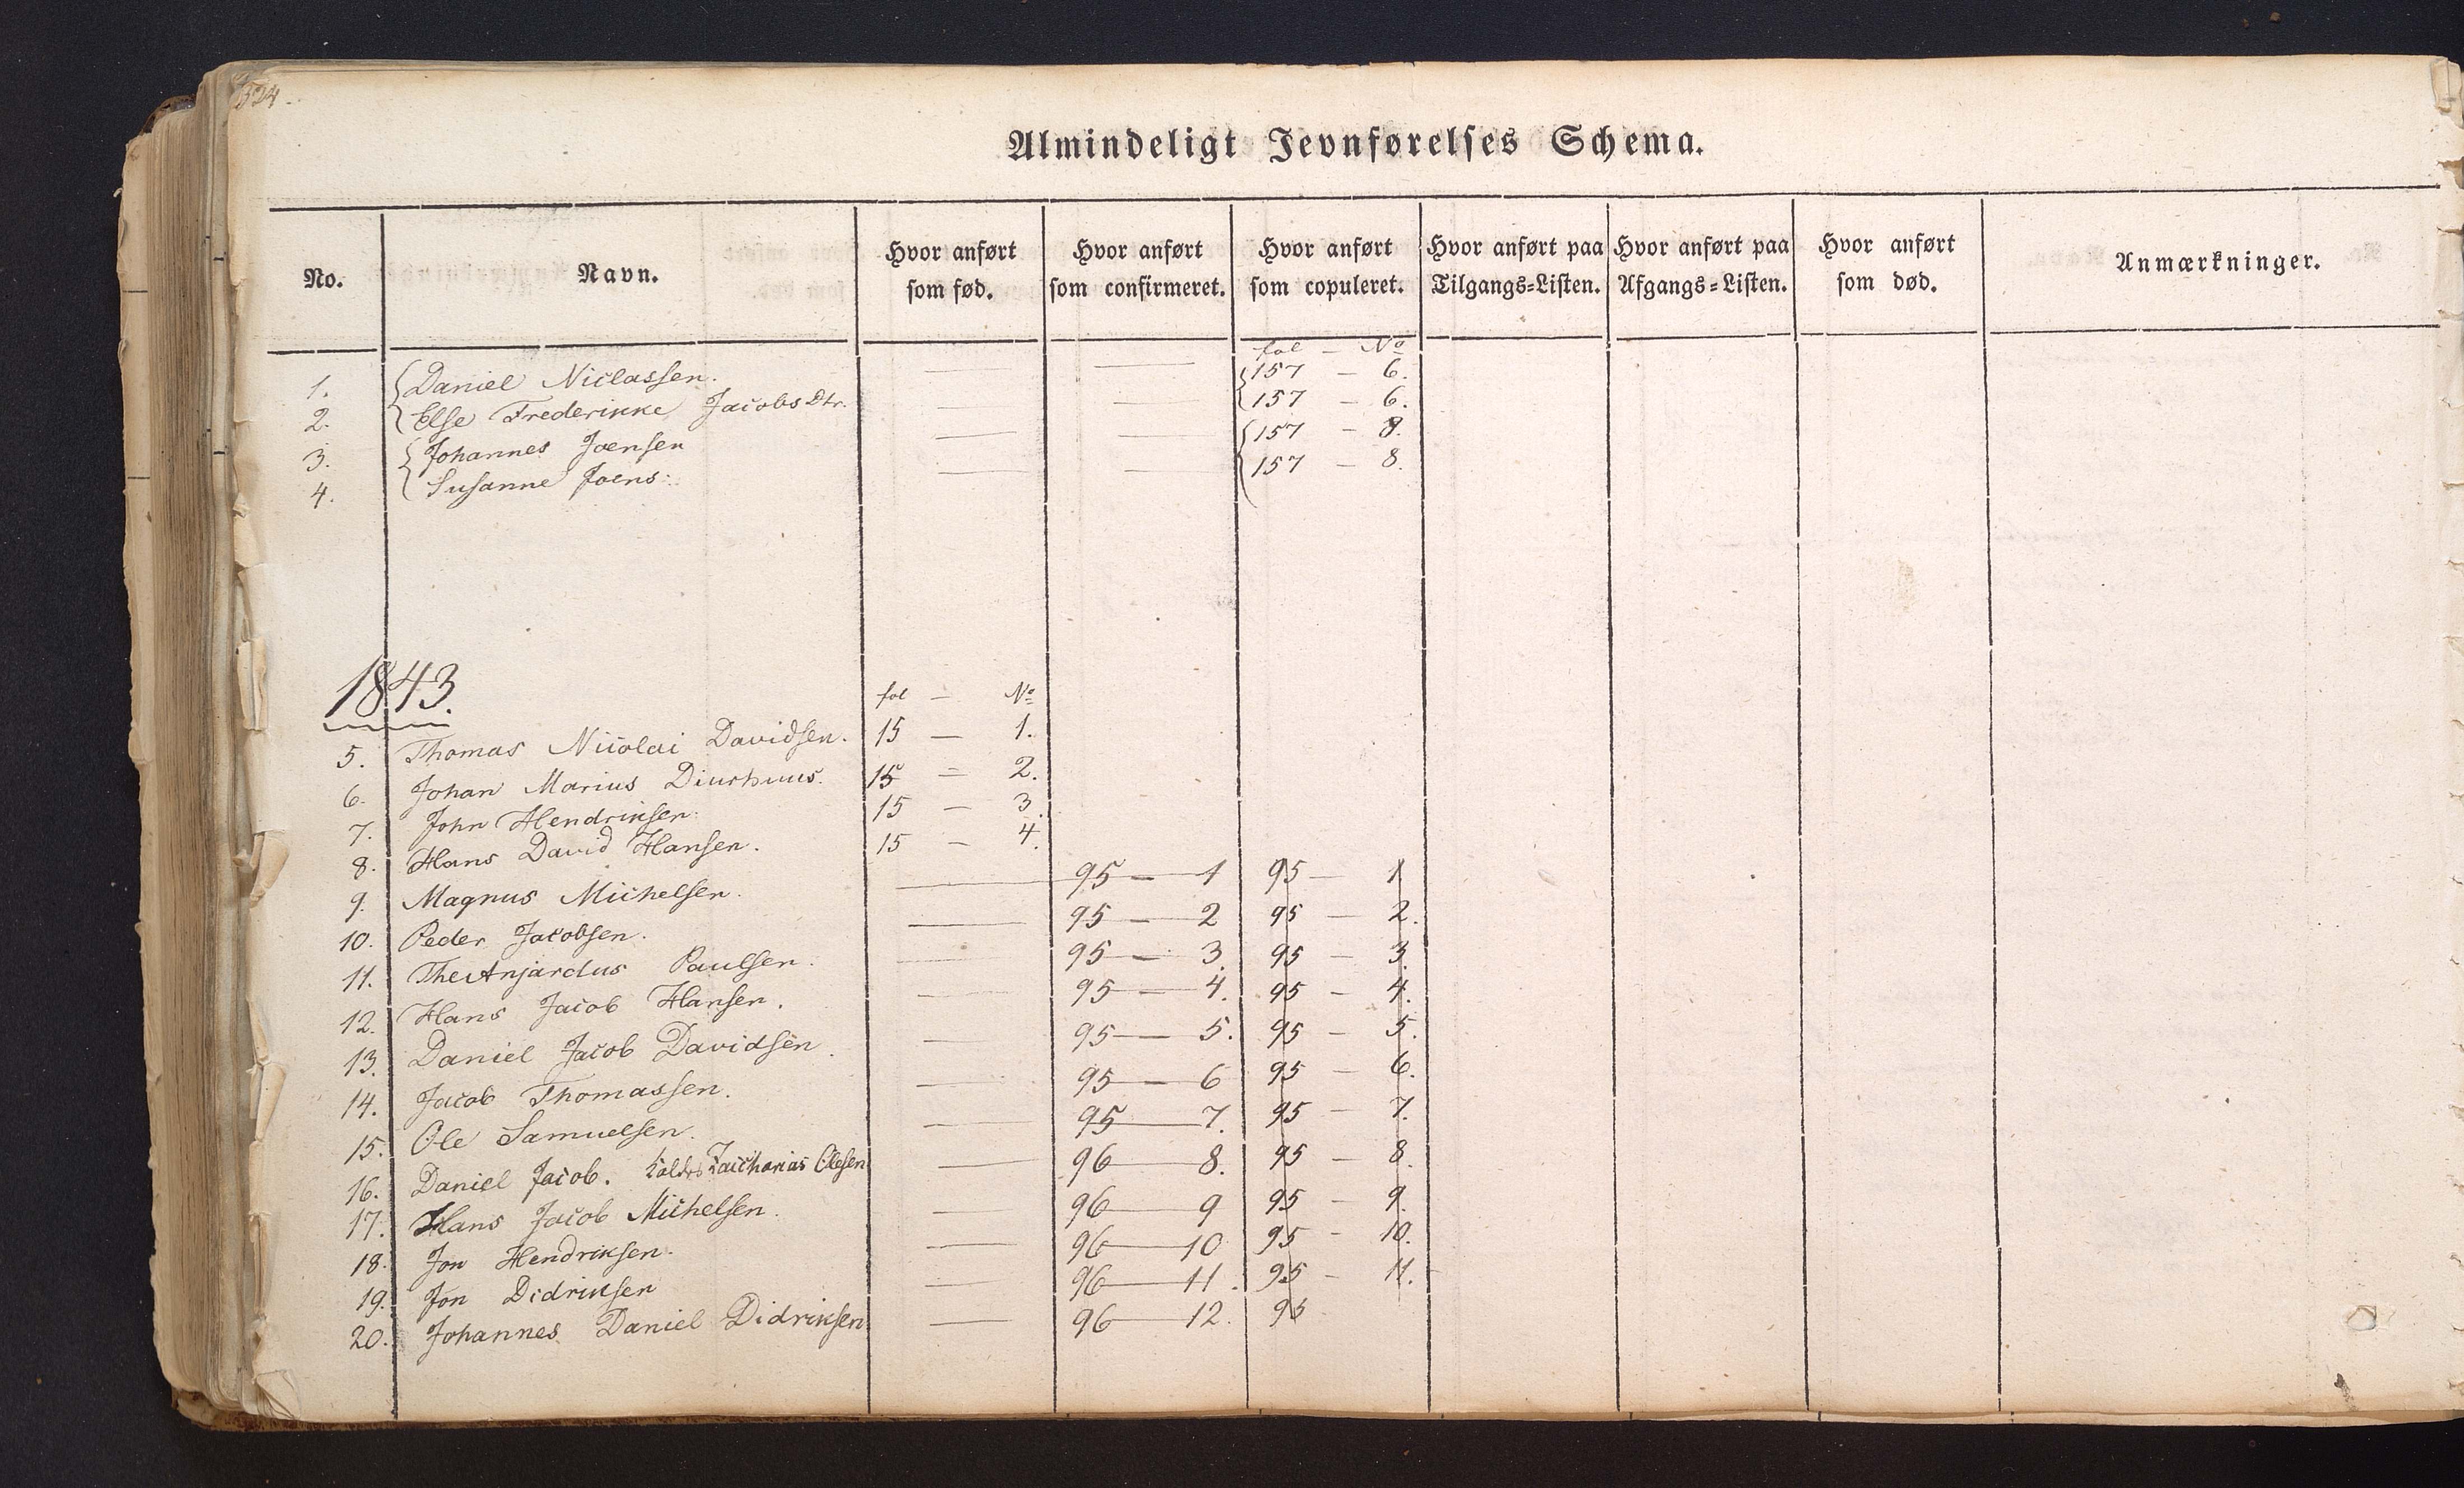 324.
Almindeligt Jevnførelses Schema.
No. Navn. Hvor anført som fød. Hvor anført som confirmeret. Hvor anført som copuleret. Hvor anført paa Tilgangs=Listen. Hvor anført paa Afgangs=Listen. Hvor anført som død. Anmærkninger.
fol — No
1. Daniel Niclassen. — — 157 — 6.
2. Else Frederikke Jacobs Dtr. — — 157 — 6.
3. Johannes Joensen — — 157 — 8.
4. Susanne Joens: — — 157 — 8.
1843.
fol — No
5. Thomas Nicolai Davidsen. 15 — 1.
6. Johan Marius Diurhuus. 15 — 2.
7. John Hendriksen. 15 — 3.
8. Hans David Hansen. 15 — 4.
9. Magnus Michelsen. — 95 — 1 95 — 1
10. Peder Jacobsen. — 95 — 2 95 — 2.
11. Paulsen. — 95 — 3. 95 — 3.
12. Hans Jacob Hansen. — 95 — 4. 95 — 4.
13. Daniel Jacob Davidsen. — 95 — 5. 95 — 5.
14. Jacob Thomassen. — 95 — 6 95 — 6.
15. Ole Samuelsen. — 95 — 7. 95 — 7.
16. Daniel Jacob. Zacharias Olesen — 96 — 8. 95 — 8.
17. Hans Jacob Michelsen. — 96 — 9 95 — 9.
18. Jon Hendriksen. — 96 — 10 95 — 10.
19. Jon Didriksen — 96 — 11. 95 — 11.
20. Johannes Daniel Didriksen — 96 — 12. 95